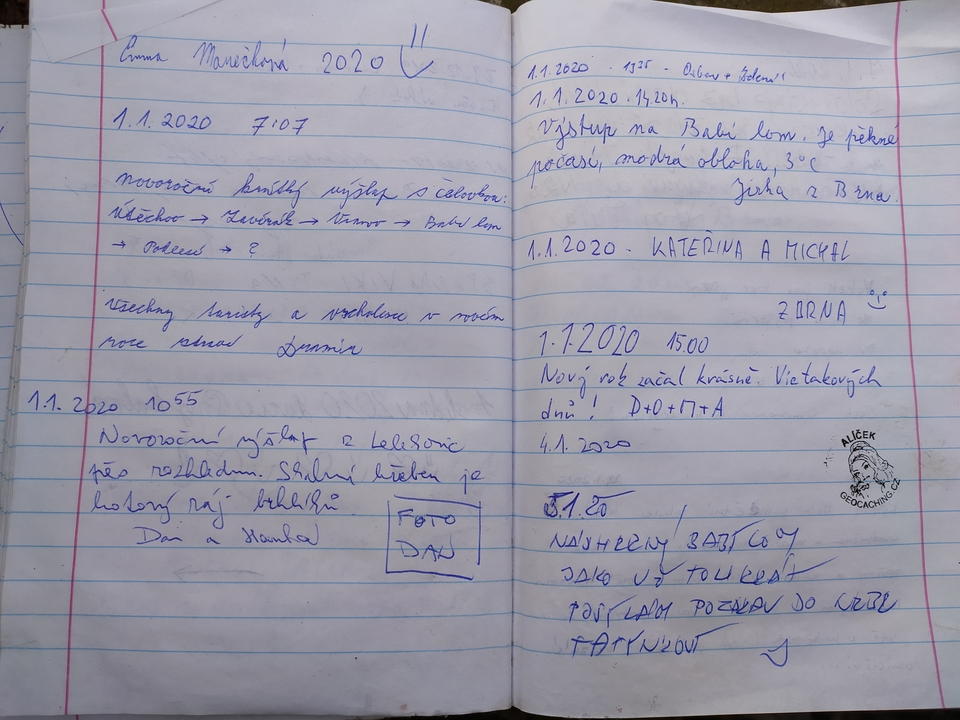 Emma Manečková 2020
1.1.2020 7:07
Novoroční krátký výstup s čelovkou:
Útěchov → Zavírák → Vranov → Babí lom
→ → ?
všechny turisty a v novém
roce
1.1.2020 10⁵⁵
Novoroční výstup z Lelekovic
přes rozhlednu. Skalní hřeben je
hotový ráj
Dan a Hanka
FOTO
DAN
1.1.2020 - 13²⁵ - +
1.1.2020 . 14.20h.
Výstup na Babí lom. Je pěkné
počasí, modrá obloha, 3°C
Jirka z Brna.
1.1.2020 - KATEŘINA A MICHAL
Z BRNA
1.1.2020 15.00
Nový rok začal krásně. Víc takových
dnů! D+O+M+A
4.1.2020
ALÍČEK
GEOCACHING.CZ
5.1.20
NÁDHERNÝ BABÍ LOM
JAKO UŽ TOLIKRÁT
POSÍLÁM POZDRAV DO NEBE
TATÍNKOVI